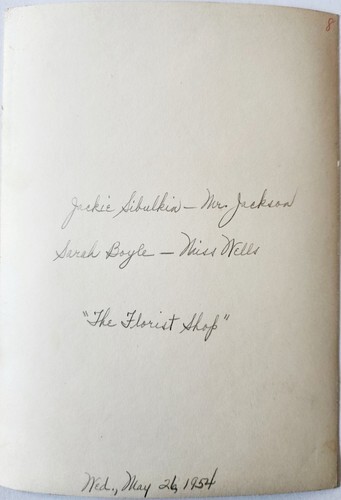 8
Jackie Sibulkin – Mr. Jackson
Sarah Boyle – Miss Wells
"The Florist Shop"
Wed., May 26, 1954